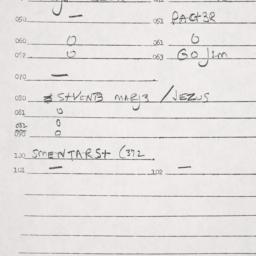 050 — 052 PACT3R
060 0 061 0
062 0 063 GOJ1M
070 —
080 STVENTS MARJ3 / JEZUS
081 0
082 0
090 0
100 SMENTARST (372
101 — 102 —